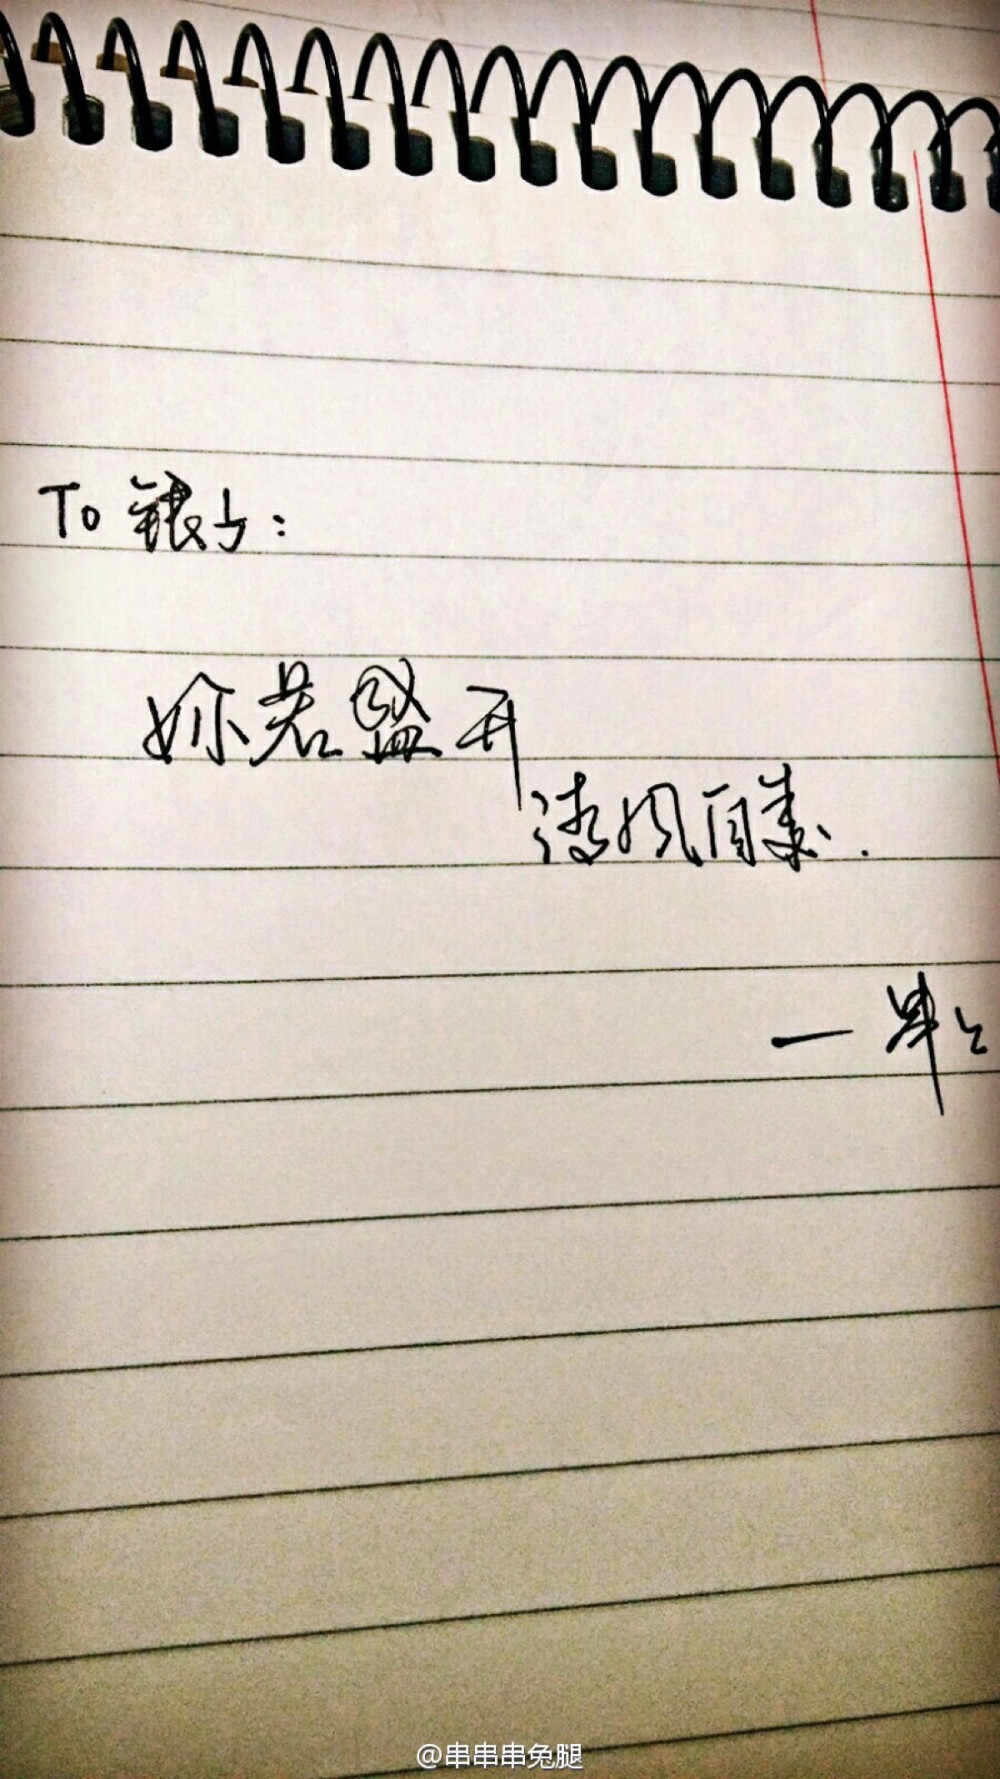 To 银
妳若盛开
清风自来.
—串々
@串串串兔腿